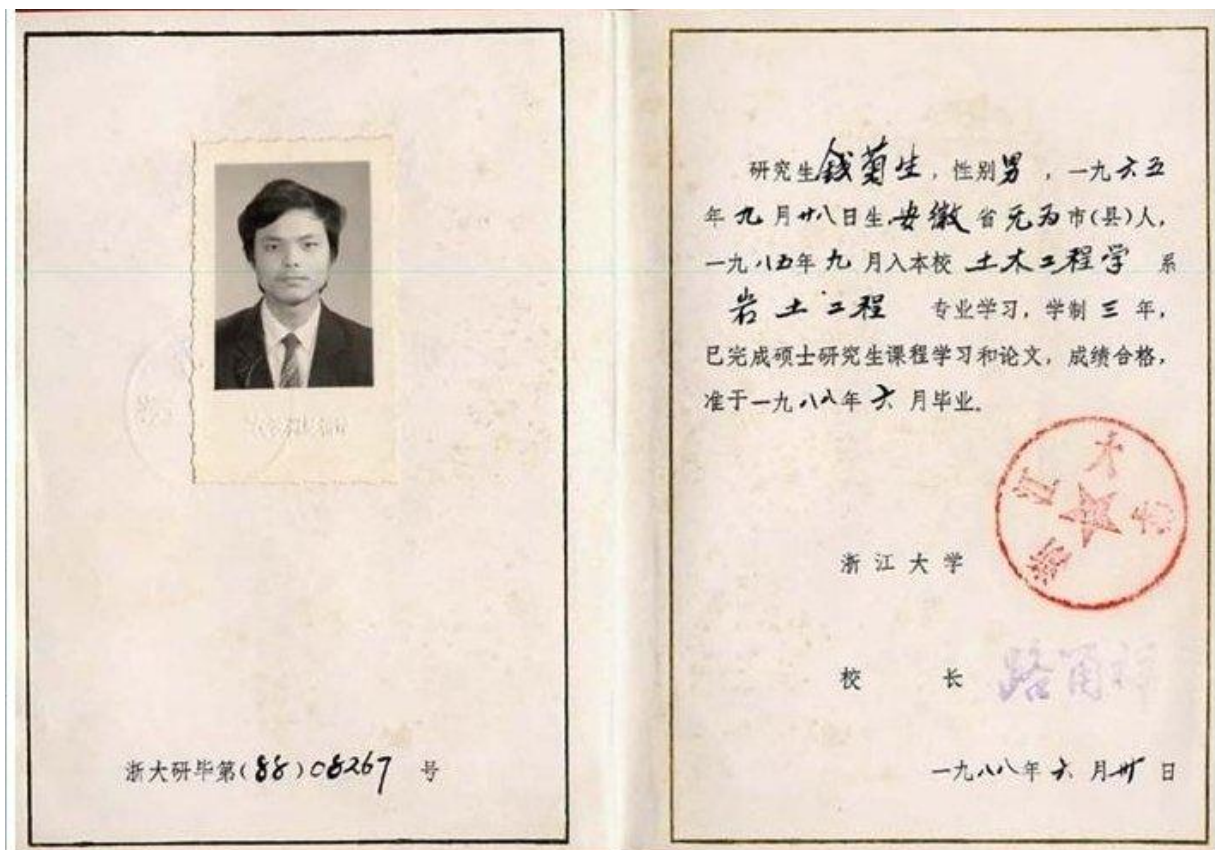 浙大研毕第(88)08267 号
研究生钱菊生，性别男，一九六五
年九月廿八日生安徽省无为市(县)人，
一九八五年九月入本校土木工程学系
岩土工程专业学习，学制三年，
已完成硕士研究生课程学习和论文，成绩合格，
准于一九八八年六月毕业。
浙江大学
浙江大学
校长 路甬祥
一九八八年六月卅日